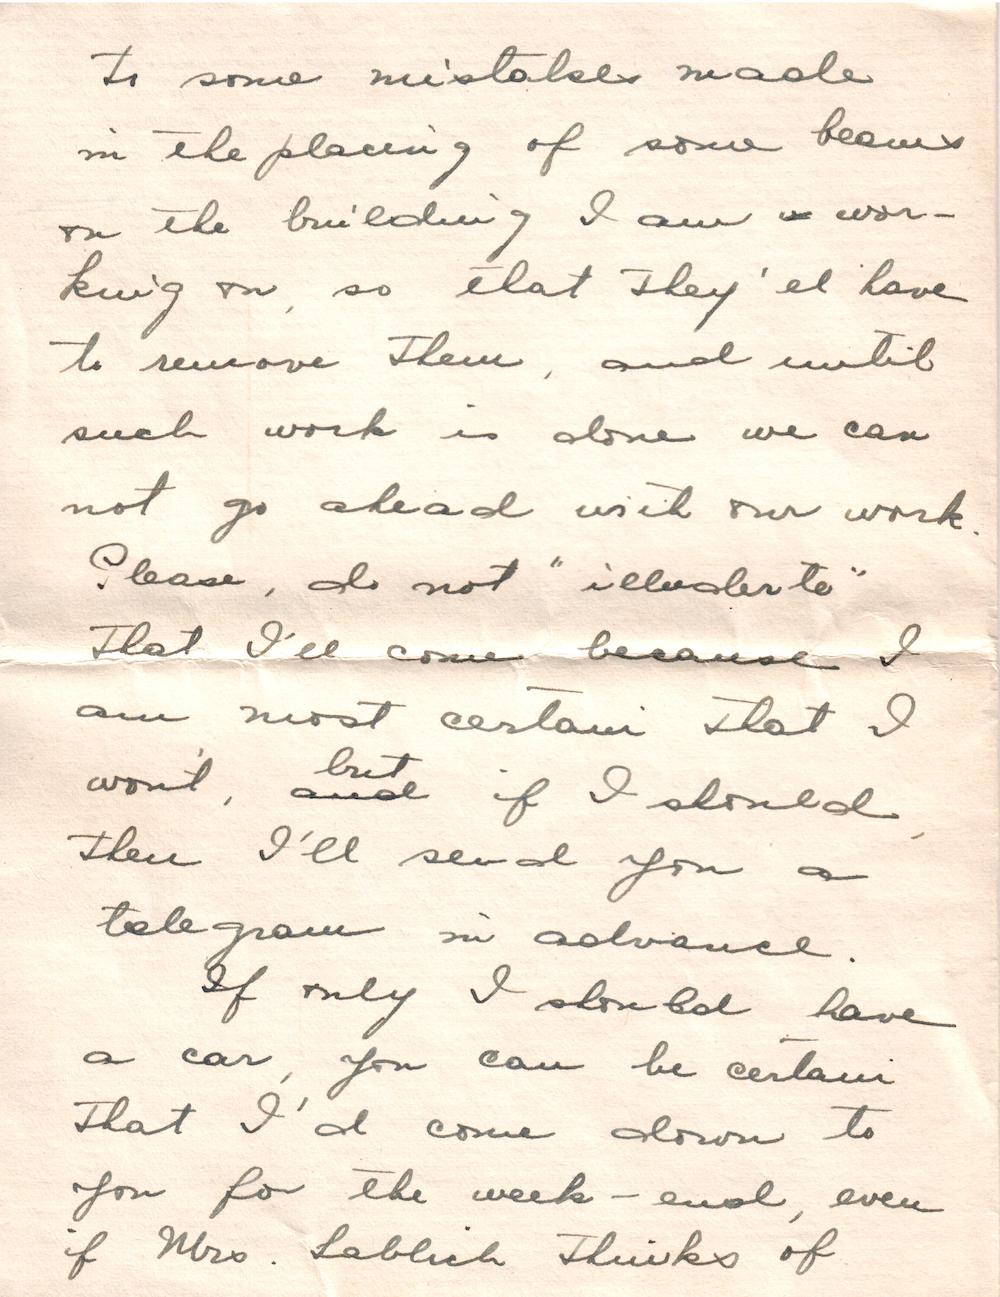 to some mistakes made
in the placing of some beams
on the building I am wor-
king on, so that they'el have
to remove them, and until
such work is done we can
not go ahead with our work.
Please, do not "illuder te"
that I'll come because I
am most certain that I
won't, but and if I should,
then I'll send you a
telegram in advance.
If only I should have
a car, you can be certain
that I'd come down to
you for the week-end, even
if Mrs. thinks of